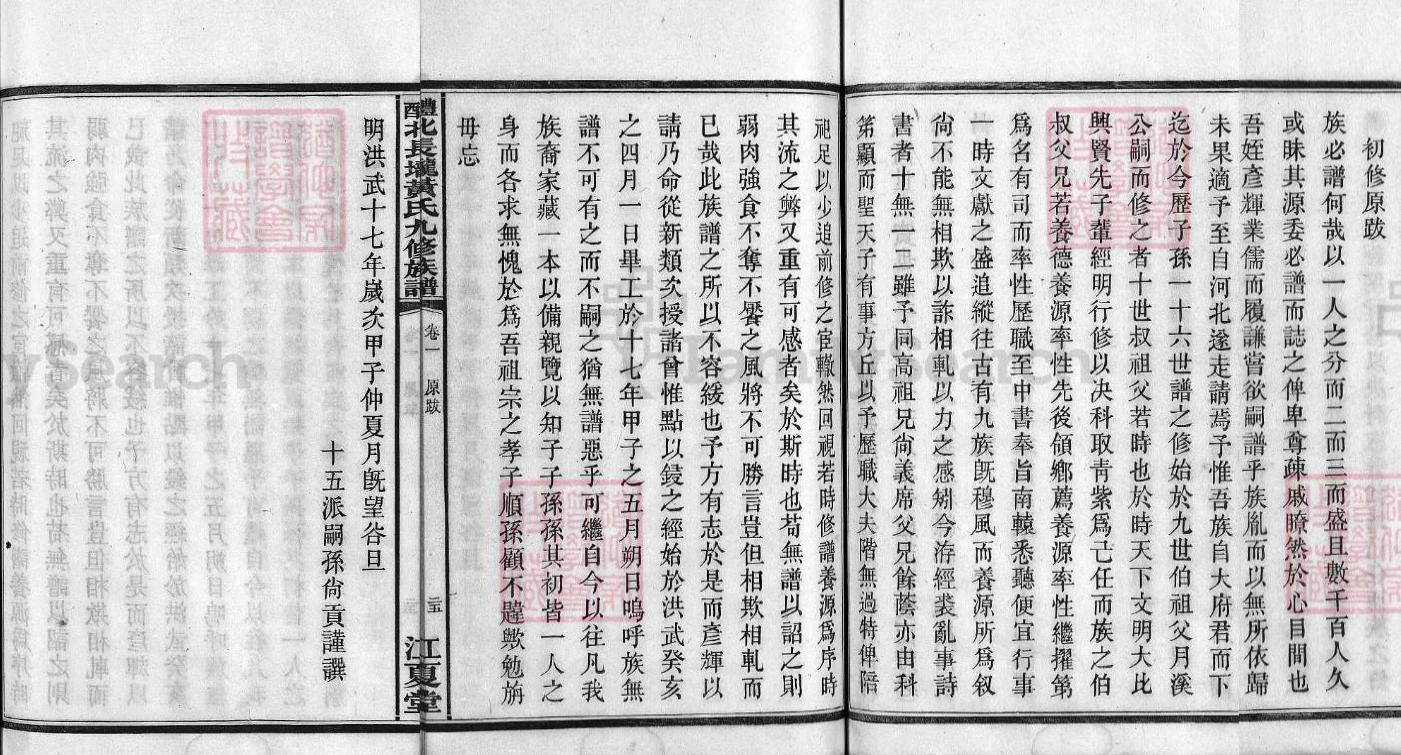 初修原跋
族必譜何哉以一人之分而二而三而盛且數千百人久
或昧其源委必譜而誌之俾卑尊疎戚瞭然於心目間也
吾姪彥輝業儒而履謙嘗欲嗣譜乎族胤而以無所依歸
未果適予至自河北遂走請焉予惟吾族自大府君而下
迄於今歷子孫一十六世譜之修始於九世伯祖父月溪
公嗣而修之者十世叔祖父若時也於時天下文明大比
興賢先子輩經明行修以决科取青紫爲己任而族之伯
叔父兄若養德養源率性先後領鄉薦養源率性繼擢第
爲名有司而率性歷職至中書奉旨南轅悉聽便宜行事
一時文獻之盛追縱往古有九族旣穆風而養源所爲叙
尙不能無相欺以詐相軋以力之感矧今洊經裘亂事詩
書者十無一二雖予同高祖兄尙義席父兄餘蔭亦由科
第顯而聖天子有事方丘以予歷職大夫階無過特俾陪
祀足以少追前修之宦轍然回視若時修譜養源爲序時
其流之弊又重有可感者矣於斯時也苟無譜以詔之則
弱肉強食不奪不饜之風將不可勝言豈但相欺相軋而
已哉此族譜之所以不容緩也予方有志於是而彥輝以
請乃命從新類次授諸曾惟點以鋟之經始於洪武癸亥
之四月一日畢工於十七年甲子之五月朔日嗚呼族無
譜不可有之而不嗣之猶無譜惡乎可繼自今以往凡我
族裔家藏一本以備親覽以知子子孫孫其初皆一人之
身而各求無愧於爲吾祖宗之孝子順孫顧不韙歟勉旃
毋忘
醴北長壠黃氏九修族譜
卷一
原跋
江夏堂
明洪武十七年歲次甲子仲夏月旣望谷旦
十五派嗣孫尙貢謹譔